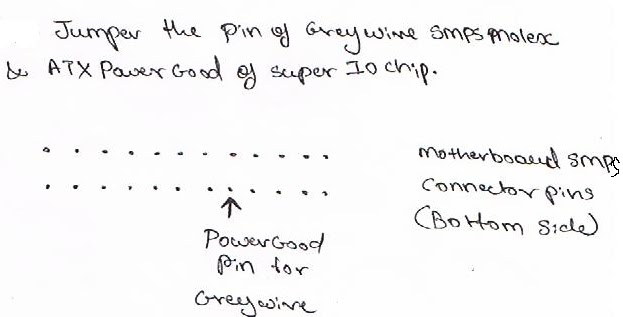 Jumper the pin of Greywire smps molex
& ATX Power Good of super Io chip.
motherboard smps
Connector pins
(Bottom Side)
Power Good
Pin for
Greywire